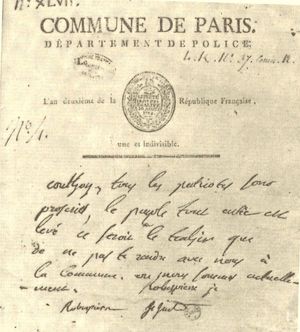 N° XLVII.
COMMUNE DE PARIS.
DÉPARTEMENT DE POLICE,
L'an deuxième de la République Française,
une et indivisible.
couthon, tous les patriotes sont
proscrits, le peuple tout entier est
levé ce seroit le trahir que
de ne pas te rendre avec nous à
la Commune où nous sommes actuelle-
ment. Robespierre je
Robespierre St Just